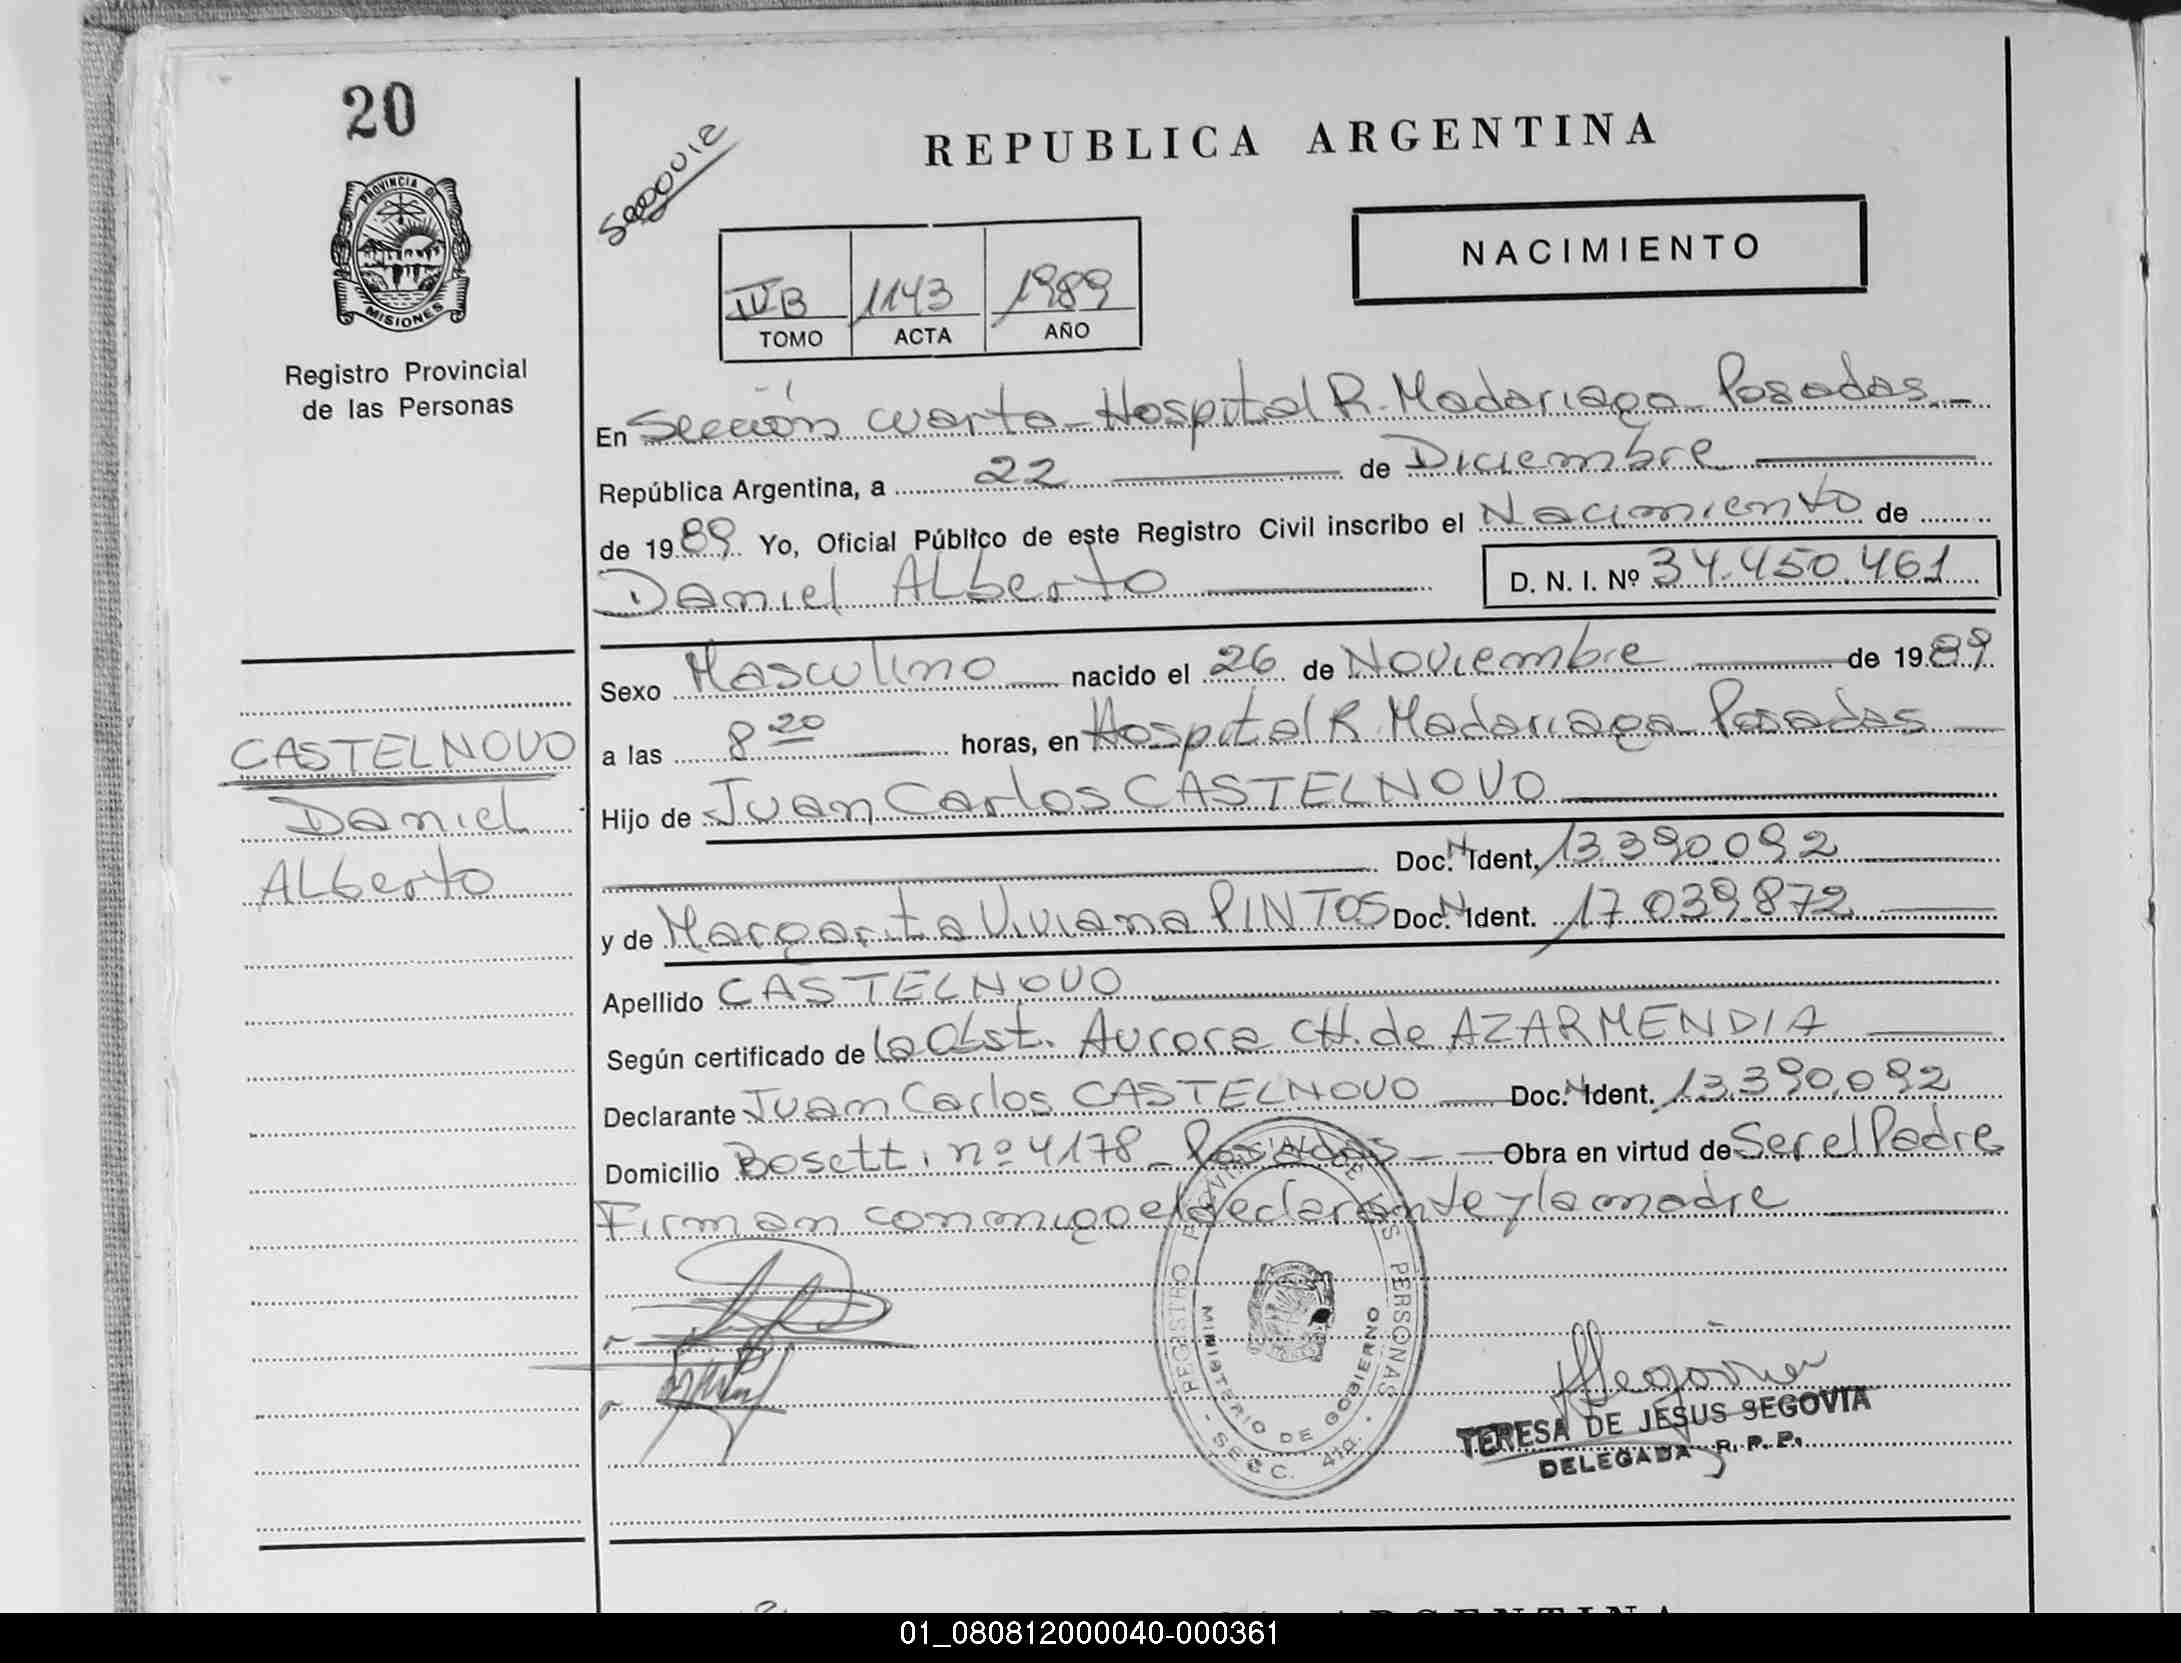 20
PROVINCIA DE
MISIONES
Registro Provincial
de las Personas
REPUBLICA ARGENTINA
NACIMIENTO
IVB 1143 1989
TOMO ACTA AÑO
En Sección cuarta - Hospital R. Madariaga - Posadas. -
República Argentina, a 22 de Diciembre
de 1989 Yo, Oficial Público de este Registro Civil inscribo el Nacimiento de
Daniel ALberto D. N. I. Nº 34.450.461
Sexo Masculino nacido el 26 de Noviembre de 1989
a las 8 20 horas, en Hospital R. Madariaga - Posadas
Hijo de Juan Carlos CASTELNOVO
Doc. N Ident. 13.390.092
y de Margarita Viviana PINTOS Doc. N Ident. 17.039.872
Apellido CASTELNOVO
Según certificado de la Obst. Aurora CH. de AZARMENDIA
Declarante Juan Carlos CASTELNOVO Doc. N Ident. 13.390.092
Domicilio Bosetti nº 4178 - Posadas - Obra en virtud de Ser el Padre
Firman conmigo el declarante y la madre
CASTELNOVO
Daniel
ALberto
REGISTRO PROVINCIAL DE LAS PERSONAS
MINISTERIO DE GOBIERNO
- SECC. 4ta. -
TERESA DE JESUS SEGOVIA
DELEGADA R. P. P.
ARGENTINA
01_080812000040-000361